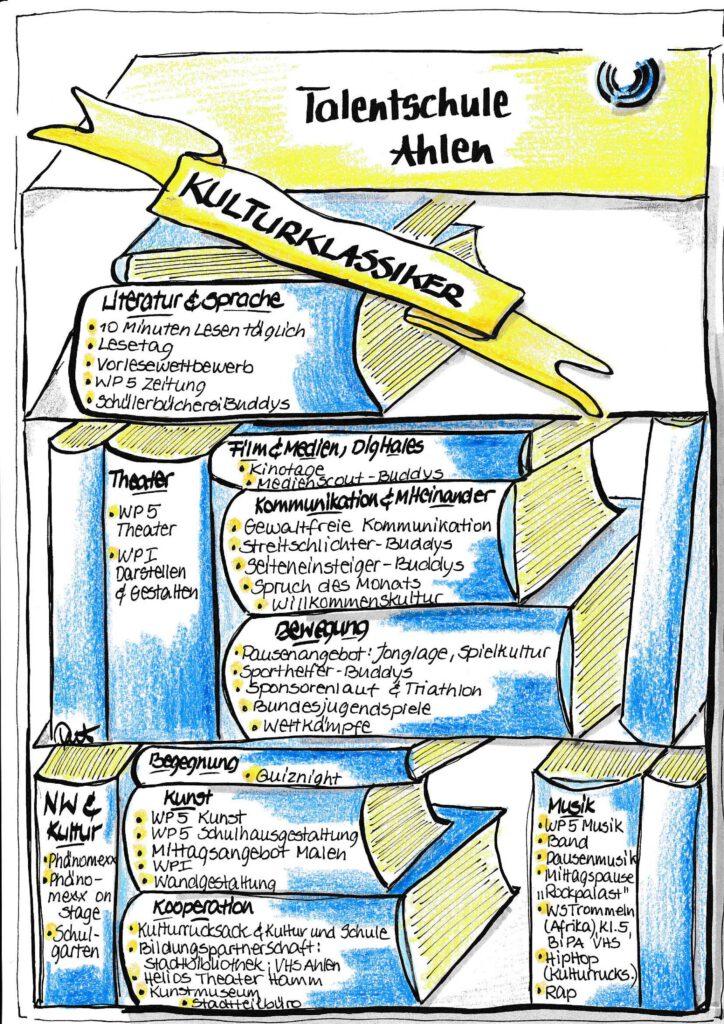 Talentschule
Ahlen
KULTURKLASSIKER
Literatur & Sprache
10 Minuten Lesen täglich
Lesetag
Vorlesewettbewerb
WP5 Zeitung
Schülerbücherei Buddys
Theater
WP5
Theater
WPI
Darstellen
& Gestalten
Film & Medien, Digitales
Kinotage
Medienscout-Buddys
Kommunikation & Miteinander
Gewaltfreie Kommunikation
Streitschlichter-Buddys
Seiteneinsteiger-Buddys
Spruch des Monats
Willkommenskultur
Bewegung
Pausenangebot: Jonglage, Spielkultur
Sporthelfer-Buddys
Sponsorenlauf & Triathlon
Bundesjugendspiele
Wettkämpfe
NW &
Kultur
Phänomexx
Phäno-
mexx on
stage
Schul-
garten
Begegnung
Quiznight
Kunst
WP5 Kunst
WP5 Schulhausgestaltung
Mittagsangebot Malen
WPI
Wandgestaltung
Kooperation
Kulturrucksack & Kultur und Schule
Bildungspartnerschaft:
Stadtbibliothek; VHS Ahlen
Helios Theater Hamm
Kunstmuseum
Stadtteilbüro
Musik
WP5 Musik
Band
Pausenmusik
Mittagspause
„Rockpalast"
WS Trommeln
(Afrika), Kl.5,
BiPA VHS
HipHop
(Kulturrucks.)
Rap